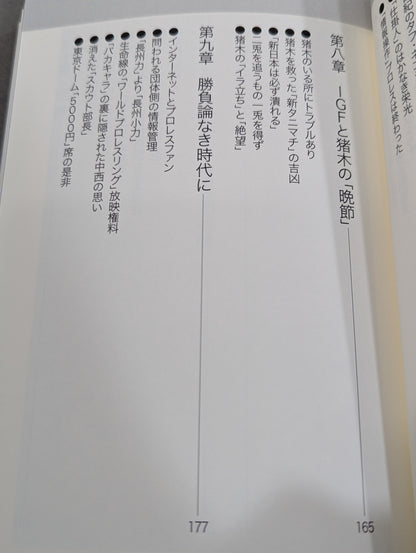 ●横綱操るプロレスは終わった
第八章 IGFと猪木の「晩節」 165
●猪木のいる所にトラブルあり
●猪木を救った「新タニマチ」の吉凶
●「新日本は必ず潰れる」
●二兎を追うもの一兎を得ず
●猪木の「イラ立ち」と「絶望」
第九章 勝負論なき時代に 177
●インターネットとプロレスファン
●問われる団体側の情報管理
●「長州力」より「長州小力」
●生命線の「ワールドプロレスリング」放映権料
●「バカキャラ」の裏に隠された中西の思い
●消えた「スカウト部長」
●東京ドーム「5000円」席の是非